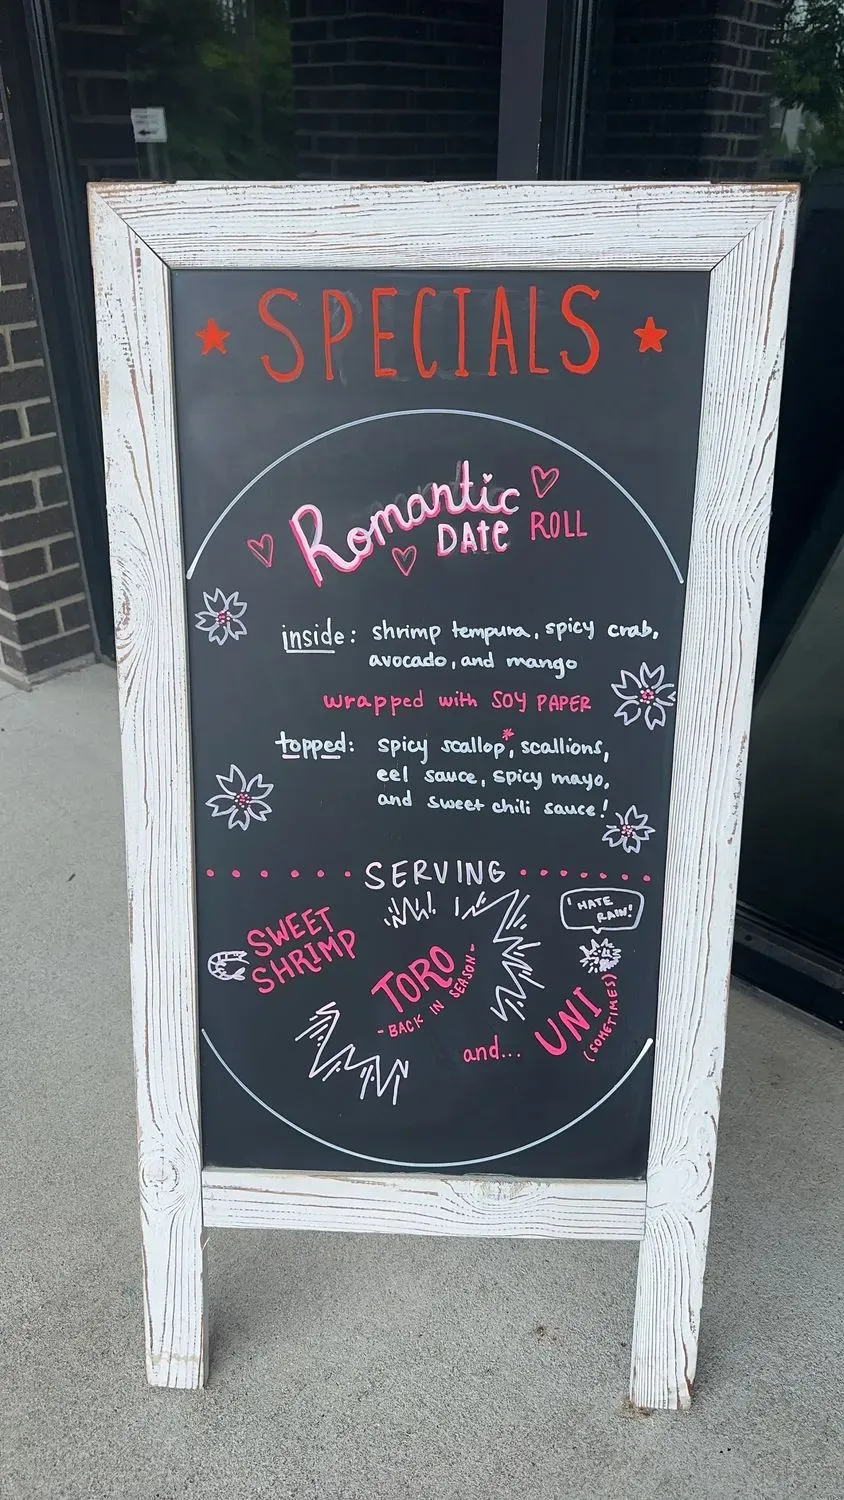 SPECIALS
Romantic
DATE ROLL
inside: shrimp tempura, spicy crab,
avocado, and mango
wrapped with SOY PAPER
topped: spicy scallop*, scallions,
eel sauce, spicy mayo,
and sweet chili sauce!
SERVING
SWEET
SHRIMP
TORO
- BACK IN SEASON -
and...
I HATE
RAIN!
UNI
(SOMETIMES)